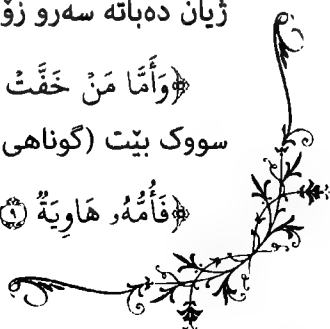 ژیان دەباتە سەرو زۆ
﴿وَأَمَّا مَنۡ خَفَّتۡ
سووک بێت (گوناهی
﴿فَأُمُّهُۥ هَاوِيَةٞ ٩